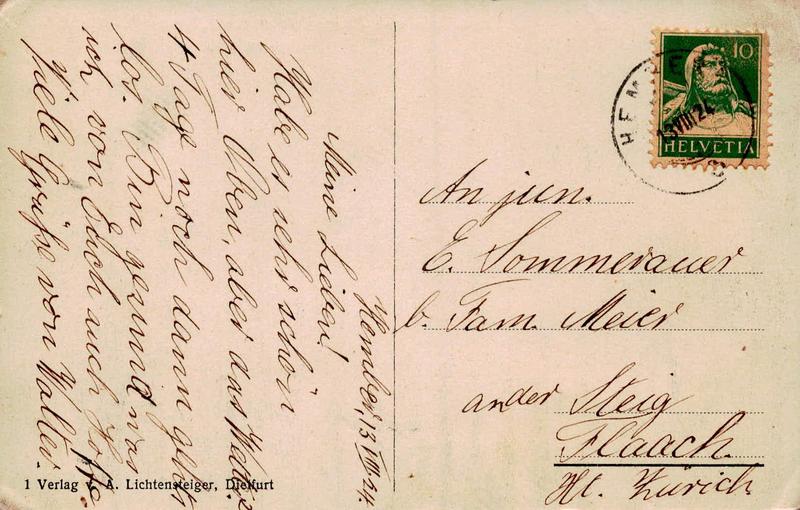 Hemberg, 13 VIII 24.
Meine Lieben!
Habe es sehr schön
hier Oben, aber Wetter?
4 Tage noch dann geht
los. Bin gesund was
ich von Euch auch hoffe.
Viele Grüße von Walter.
1 Verlag v. A. Lichtensteiger, Dietfurt
10
HELVETIA
HEMBERG
13 VIII 24
An jun.
E. Sommerauer
b. Fam. Meier
an der Steig
Flaach.
Kt. Zürich